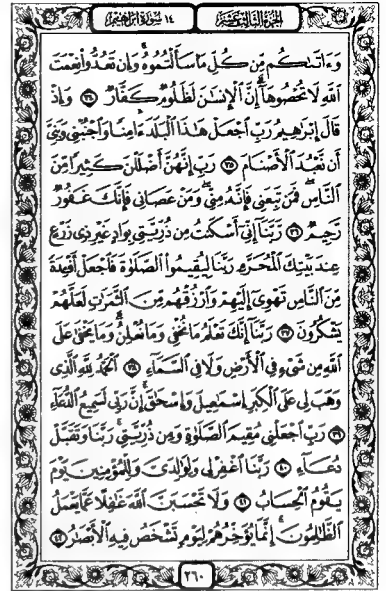 الجزء الثالث عشر
١٤ سورة ابراهيم
وَءَاتَىٰكُم مِّن كُلِّ مَا سَأَلْتُمُوهُ ۚ وَإِن تَعُدُّوا۟ نِعْمَتَ
ٱللَّهِ لَا تُحْصُوهَآ ۗ إِنَّ ٱلْإِنسَٰنَ لَظَلُومٌ كَفَّارٌ ٣٤ وَإِذْ
قَالَ إِبْرَٰهِيمُ رَبِّ ٱجْعَلْ هَٰذَا ٱلْبَلَدَ ءَامِنًا وَٱجْنُبْنِى وَبَنِىَّ
أَن نَّعْبُدَ ٱلْأَصْنَامَ ٣٥ رَبِّ إِنَّهُنَّ أَضْلَلْنَ كَثِيرًا مِّنَ
ٱلنَّاسِ ۖ فَمَن تَبِعَنِى فَإِنَّهُۥ مِنِّى ۖ وَمَنْ عَصَانِى فَإِنَّكَ غَفُورٌ
رَّحِيمٌ ٣٦ رَّبَّنَآ إِنِّىٓ أَسْكَنتُ مِن ذُرِّيَّتِى بِوَادٍ غَيْرِ ذِى زَرْعٍ
عِندَ بَيْتِكَ ٱلْمُحَرَّمِ رَبَّنَا لِيُقِيمُوا۟ ٱلصَّلَوٰةَ فَٱجْعَلْ أَفْـِٔدَةً
مِّنَ ٱلنَّاسِ تَهْوِىٓ إِلَيْهِمْ وَٱرْزُقْهُم مِّنَ ٱلثَّمَرَٰتِ لَعَلَّهُمْ
يَشْكُرُونَ ٣٧ رَبَّنَآ إِنَّكَ تَعْلَمُ مَا نُخْفِى وَمَا نُعْلِنُ ۗ وَمَا يَخْفَىٰ عَلَى
ٱللَّهِ مِن شَىْءٍ فِى ٱلْأَرْضِ وَلَا فِى ٱلسَّمَآءِ ٣٨ ٱلْحَمْدُ لِلَّهِ ٱلَّذِى
وَهَبَ لِى عَلَى ٱلْكِبَرِ إِسْمَٰعِيلَ وَإِسْحَٰقَ ۚ إِنَّ رَبِّى لَسَمِيعُ ٱلدُّعَآءِ
٣٩ رَبِّ ٱجْعَلْنِى مُقِيمَ ٱلصَّلَوٰةِ وَمِن ذُرِّيَّتِى ۚ رَبَّنَا وَتَقَبَّلْ
دُعَآءِ ٤٠ رَبَّنَا ٱغْفِرْ لِى وَلِوَٰلِدَىَّ وَلِلْمُؤْمِنِينَ يَوْمَ
يَقُومُ ٱلْحِسَابُ ٤١ وَلَا تَحْسَبَنَّ ٱللَّهَ غَٰفِلًا عَمَّا يَعْمَلُ
ٱلظَّٰلِمُونَ ۚ إِنَّمَا يُؤَخِّرُهُمْ لِيَوْمٍ تَشْخَصُ فِيهِ ٱلْأَبْصَٰرُ ٤٢
٢٦٠